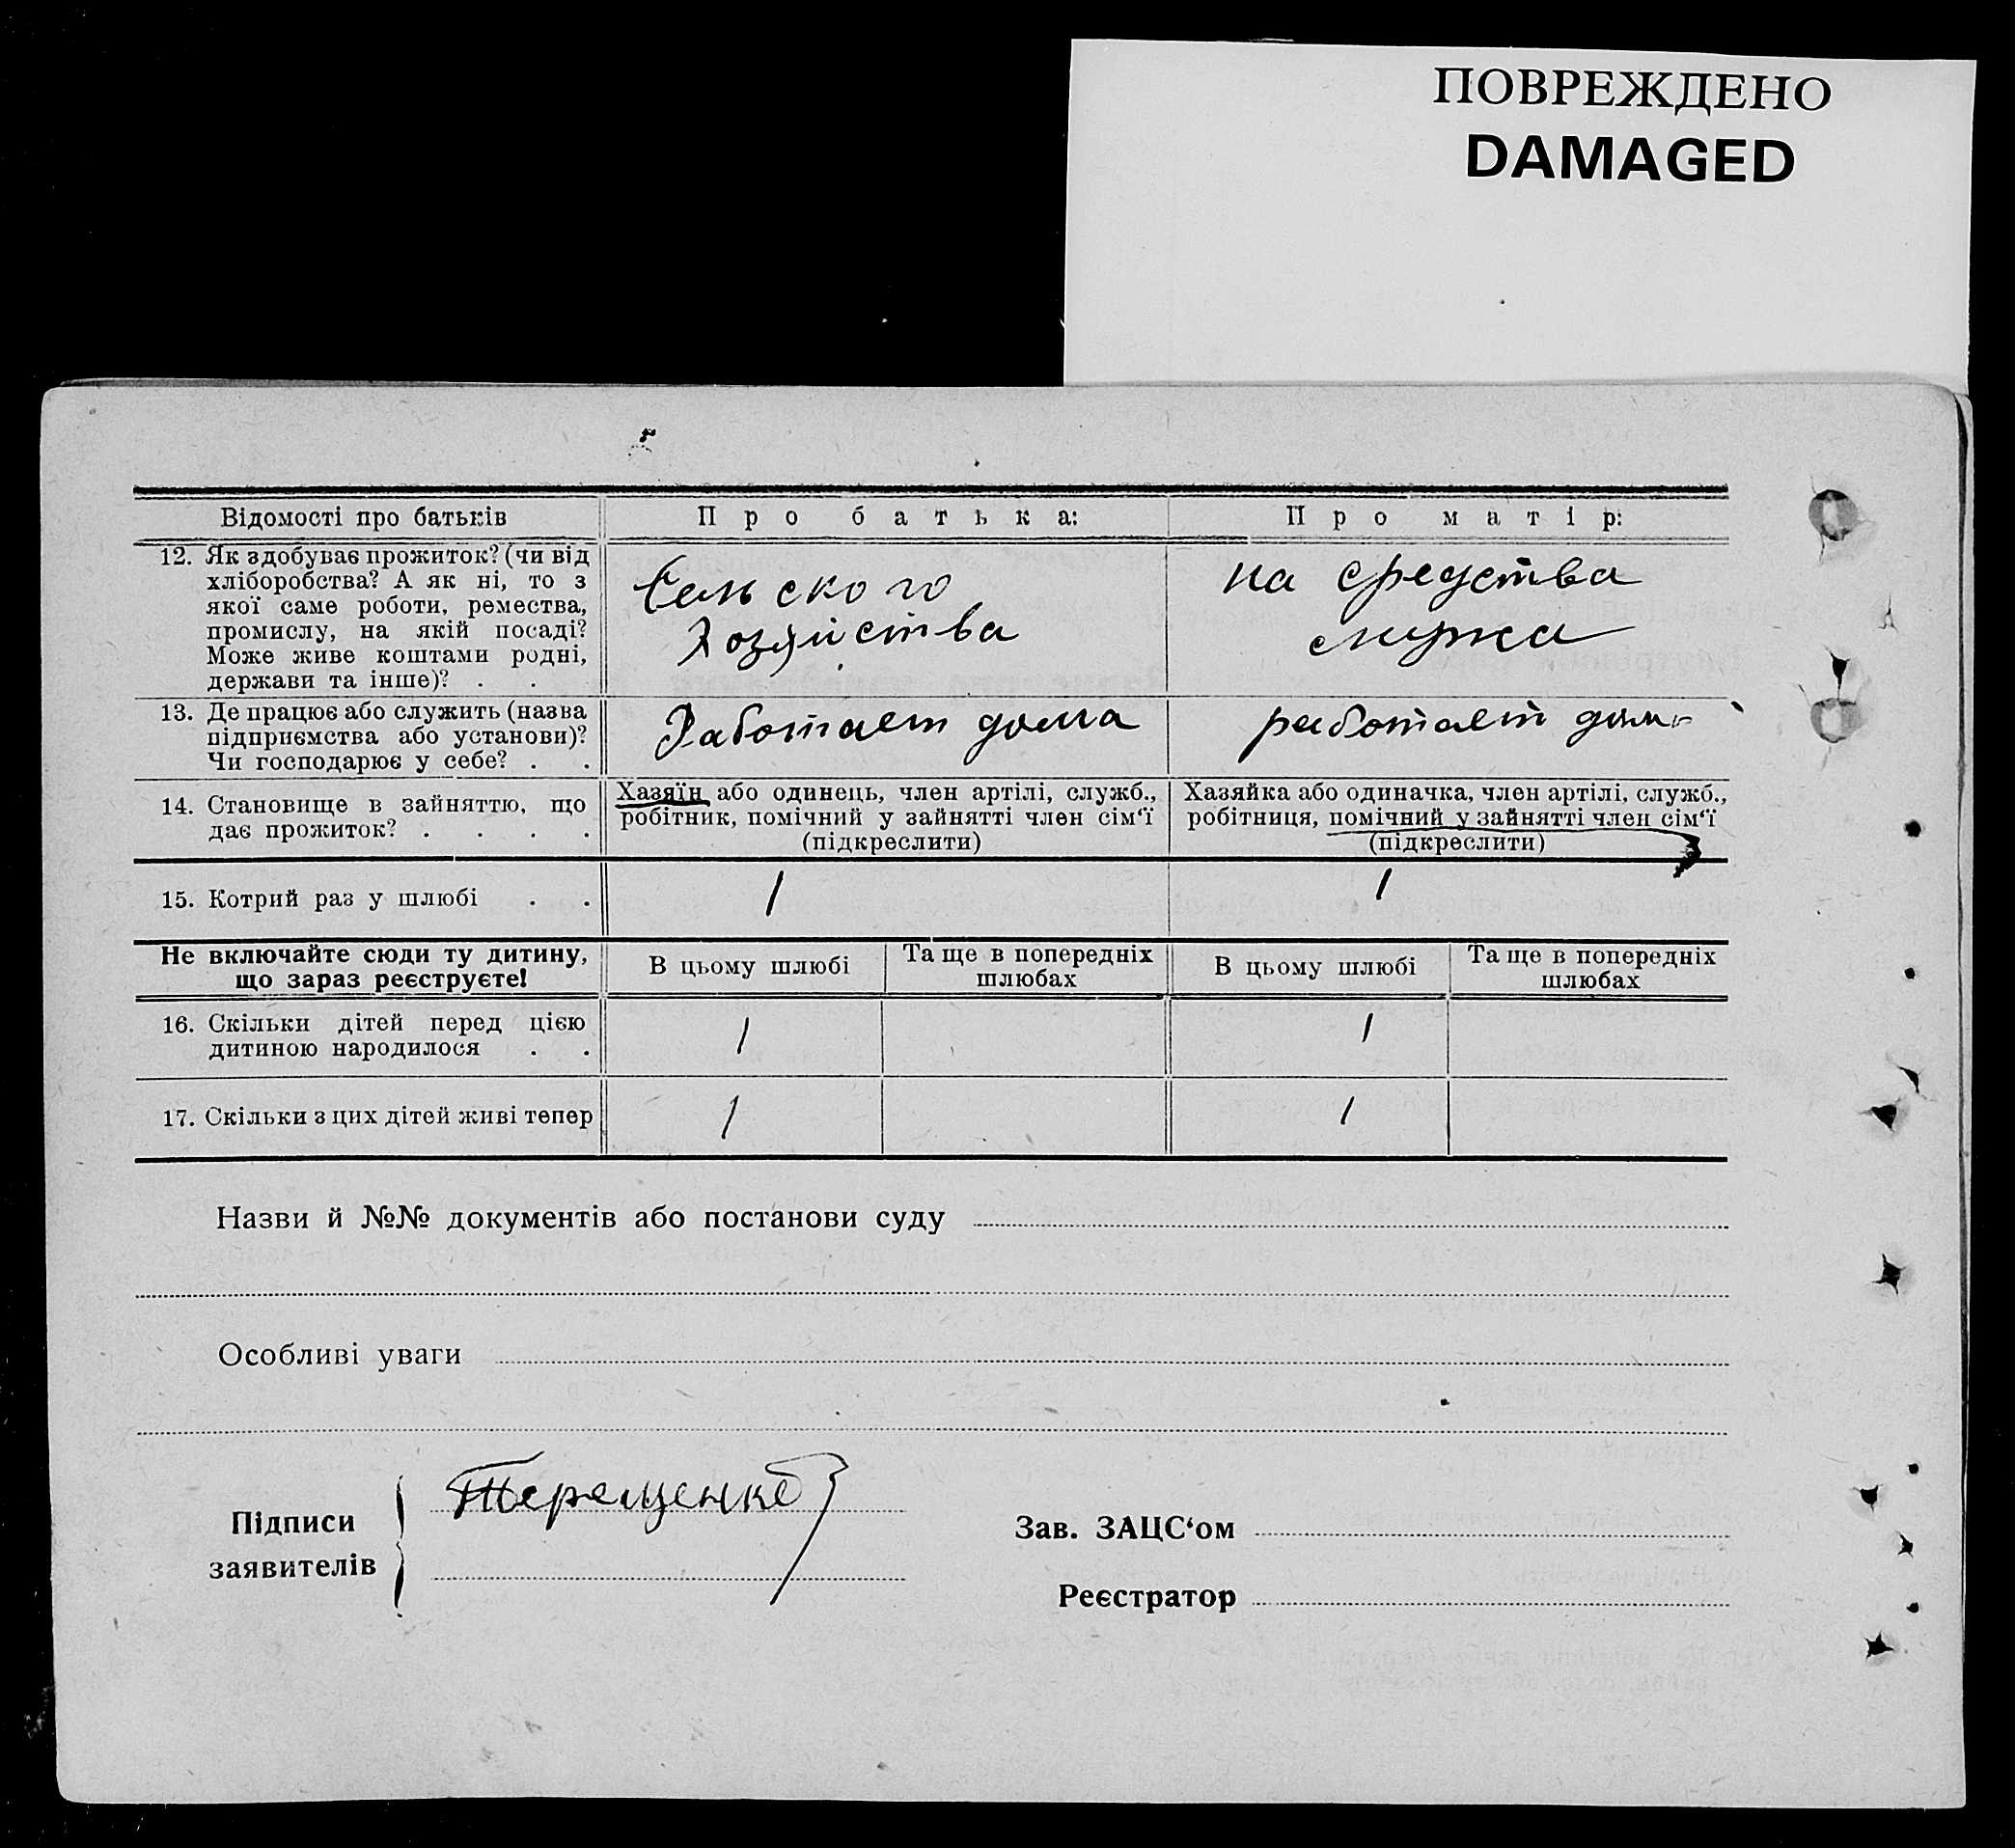 ПОВРЕЖДЕНО
DAMAGED
Відомості про батьків
Про батька:
Про матір:
12. Як здобуває прожиток? (чи від
хліборобства? А як ні, то з
якої саме роботи, ремества,
промислу, на якій посаді?
Може живе коштами родні,
держави та інше)? . .
Сельского
Хозяйства
на средства
мужа
13. Де працює або служить (назва
підприємства або установи)?
Чи господарює у себе? . .
Работает дома
работает дома
14. Становище в зайняттю, що
дає прожиток? . . . .
Хазяїн або одинець, член артілі, служб.,
робітник, помічний у зайнятті член сім‘ї
(підкреслити)
Хазяйка або одиначка, член артілі, служб.,
робітниця, помічний у зайнятті член сім‘ї
(підкреслити)
15. Котрий раз у шлюбі . .
1
1
Не включайте сюди ту дитину,
що зараз реєструєте!
В цьому шлюбі
Та ще в попередніх
шлюбах
В цьому шлюбі
Та ще в попередніх
шлюбах
16. Скільки дітей перед цією
дитиною народилося . .
1
1
17. Скільки з цих дітей живі тепер
1
1
Назви й №№ документів або постанови суду
Особливі уваги
Підписи
заявителів
Терещенко
Зав. ЗАЦС‘ом
Реєстратор